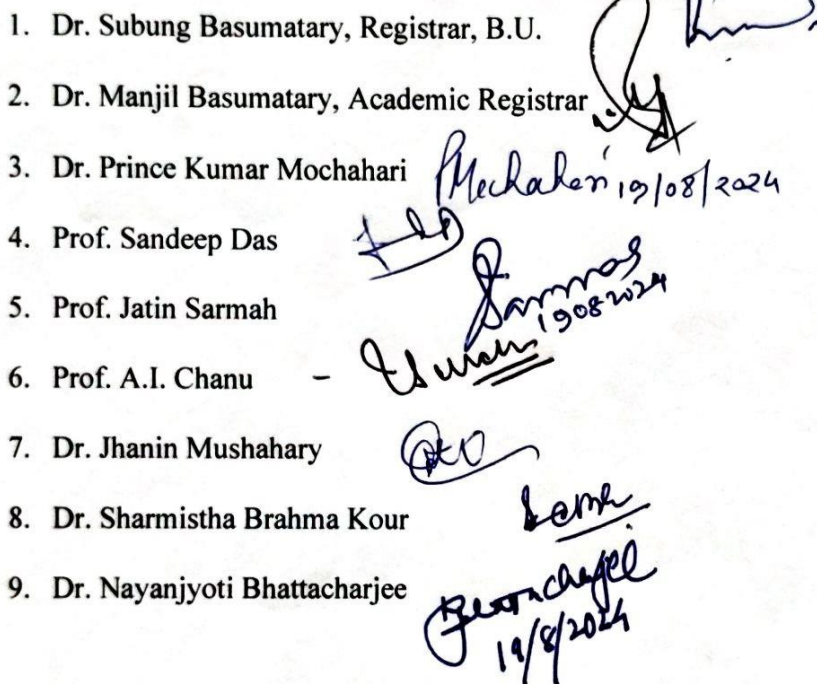 1. Dr. Subung Basumatary, Registrar, B.U.
2. Dr. Manjil Basumatary, Academic Registrar
3. Dr. Prince Kumar Mochahari 19/08/2024
4. Prof. Sandeep Das
5. Prof. Jatin Sarmah 19082024
6. Prof. A.I. Chanu -
7. Dr. Jhanin Mushahary
8. Dr. Sharmistha Brahma Kour
9. Dr. Nayanjyoti Bhattacharjee
19/8/2024